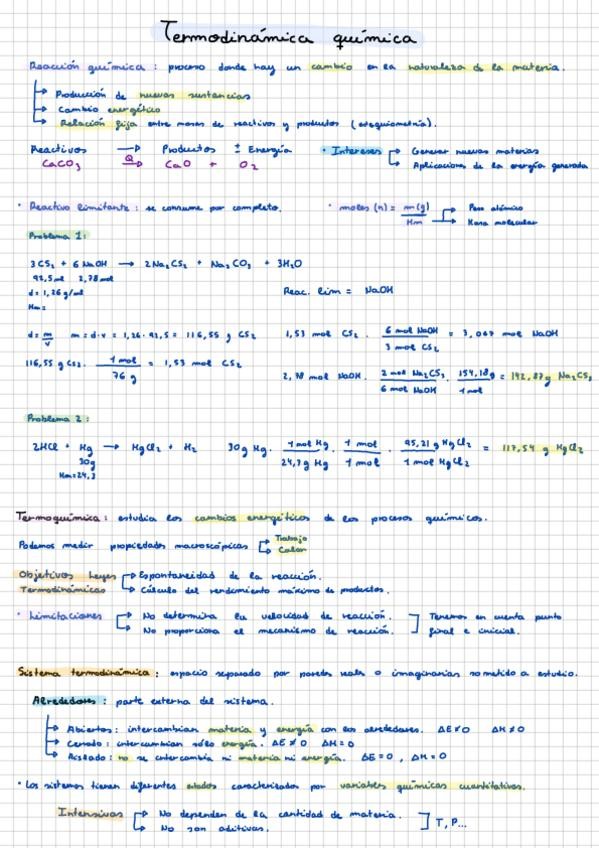 Termodinámica química
Reacción química: proceso donde hay un cambio en la naturaleza de la materia.
→ Producción de nuevas sustancias
→ Cambio energético
→ Relación fija entre masas de reactivos y productos (estequiometría).
Reactivos → Productos ± Energía
CaCO₃ →Q CaO + O₂
• Intereses → Generar nuevas materias
→ Aplicaciones de la energía generada
• Reactivo limitante: se consume por completo.
• moles (n) = m(g) / Mm → Peso atómico
→ Masa molecular
Problema 1:
3CS₂ + 6NaOH → 2Na₂CS₂ + Na₂CO₃ + 3H₂O
92,5ml 2,78mol
d = 1,26 g/ml
Mm =
Reac. lim = NaOH
d = m/v m = d·v = 1,26·92,5 = 116,55 g CS₂
1,53 mol CS₂ · 6 mol NaOH / 3 mol CS₂ = 3,067 mol NaOH
116,55 g CS₂ · 1 mol / 76 g = 1,53 mol CS₂
2,78 mol NaOH · 2 mol Na₂CS₃ / 6 mol NaOH · 154,18g / 1 mol = 142,87g Na₂CS₃
Problema 2:
2HCl + Mg → MgCl₂ + H₂
30g
Mm=24,3
30g Mg · 1 mol Mg / 24,3g Mg · 1 mol / 1 mol · 95,21g MgCl₂ / 1 mol MgCl₂ = 117,54 g MgCl₂
Termoquímica: estudia los cambios energéticos de los procesos químicos.
Podemos medir propiedades macroscópicas → Trabajo
→ Calor
Objetivos Leyes Termodinámicas → Espontaneidad de la reacción.
→ Cálculo del rendimiento máximo de productos.
• Limitaciones → No determina la velocidad de reacción.
→ No proporciona el mecanismo de reacción.
] Tenemos en cuenta punto
final e inicial.
Sistema termodinámica: espacio separado por paredes reales o imaginarias sometido a estudio.
Alrededores: parte externa del sistema.
→ Abiertos: intercambian materia y energía con los alrededores. ΔE≠0 ΔM≠0
→ Cerrado: intercambian sólo energía. ΔE≠0 ΔM=0
→ Aislado: no se intercambia ni materia ni energía. ΔE=0, ΔM=0
• Los sistemas tienen diferentes estados caracterizados por variables químicas cuantitativas.
Intensivas → No dependen de la cantidad de materia.
→ No son aditivas.
] T, P...